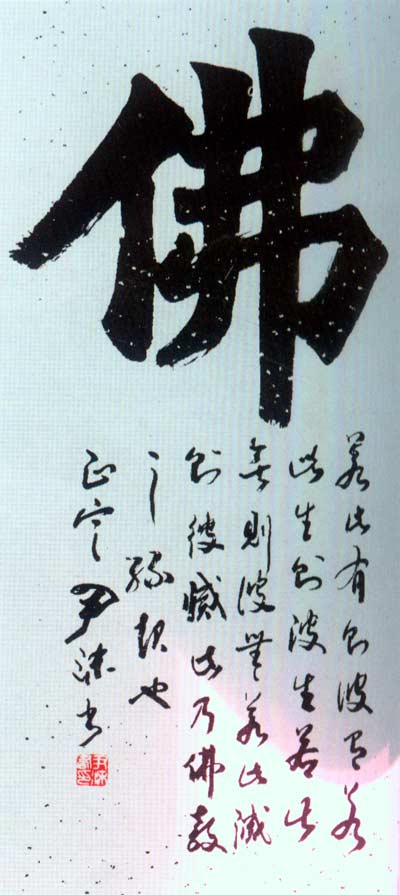 佛
若此有則彼有若
此生則彼生若此
無則彼無若此滅
則彼滅此乃佛教
之緣起也
正宁尹书